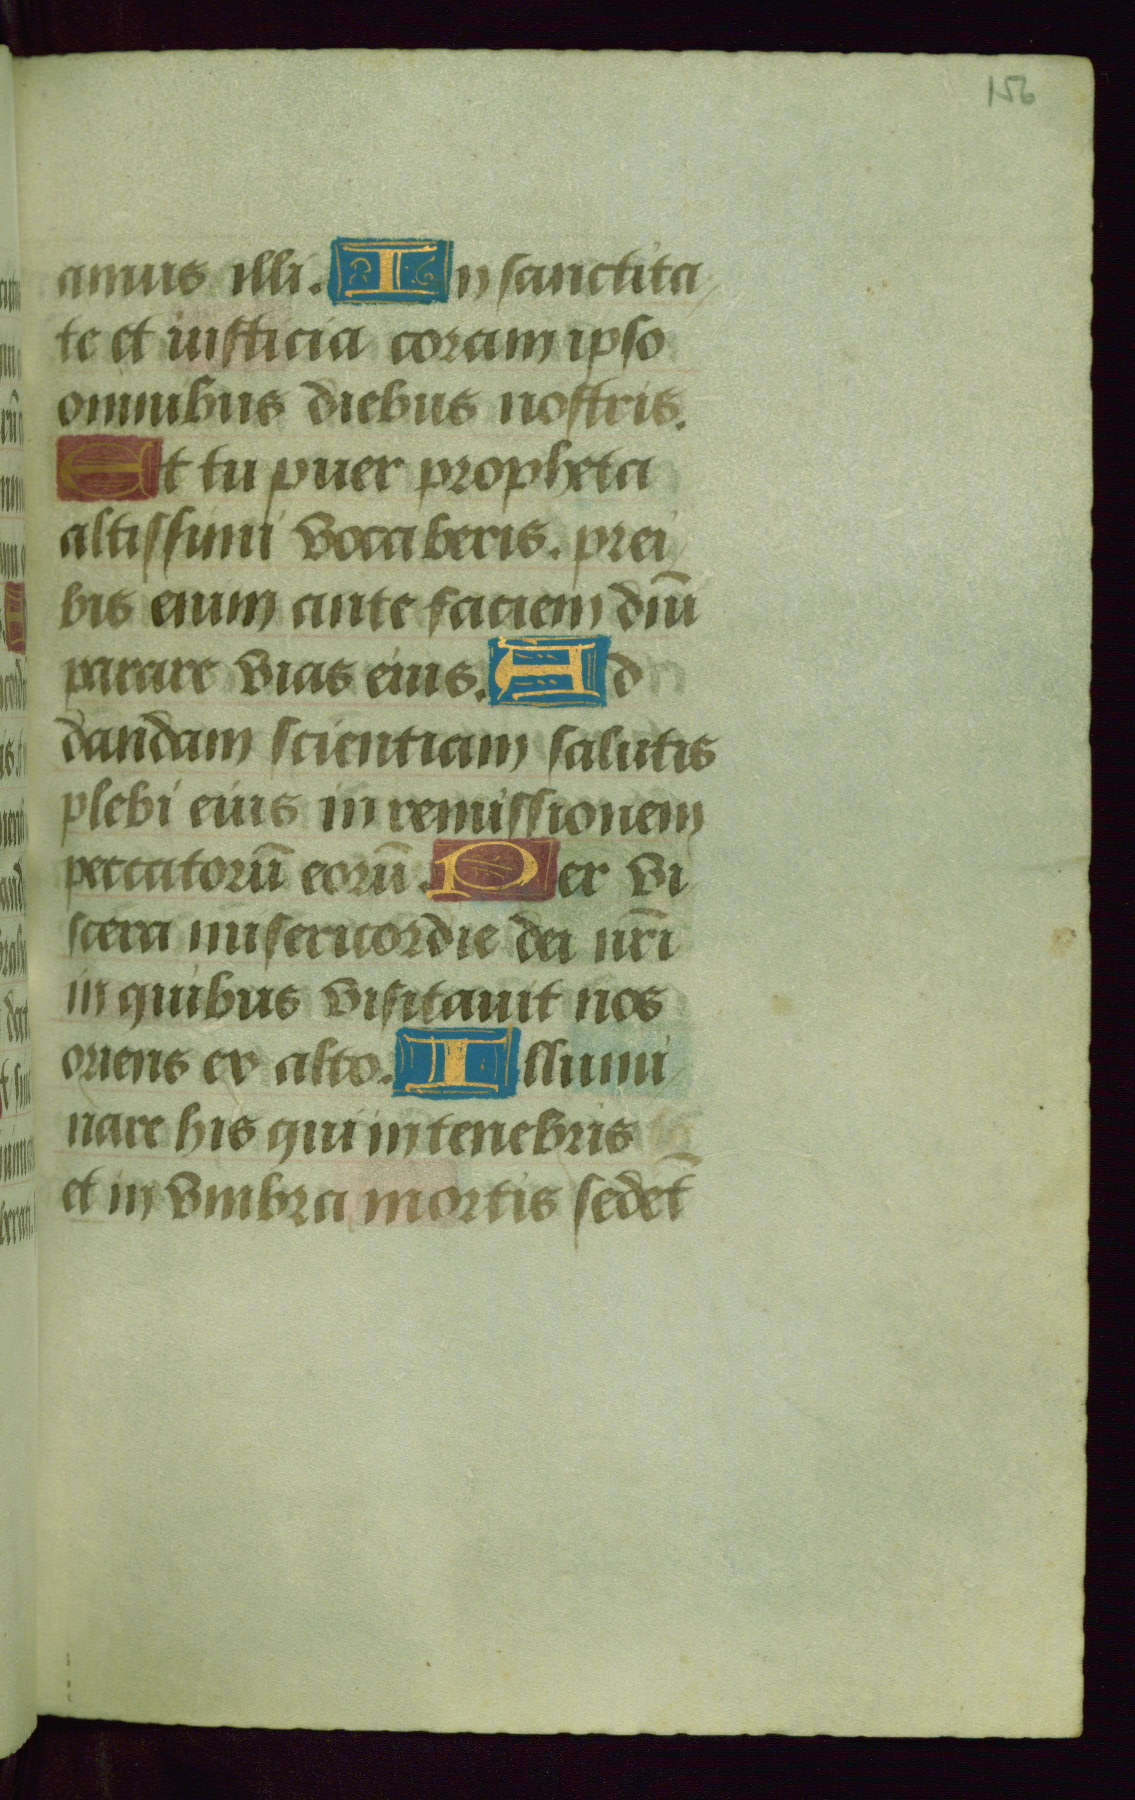 156
amus illi. In sanctita
te et iusticia coram ipso
omnibus diebus nostris.
Et tu puer propheta
altissimi vocaberis. prei
bis enim ante faciem dn̄i
parare vias eius. Ad
dandam scientiam salutis
plebi eius in remissionem
peccatorū eorū. Per vi
scera misericordie dei nr̄i
in quibus visitauit nos
oriens ex alto. Illumi
nare his qui in tenebris
et in vmbra mortis sedēt